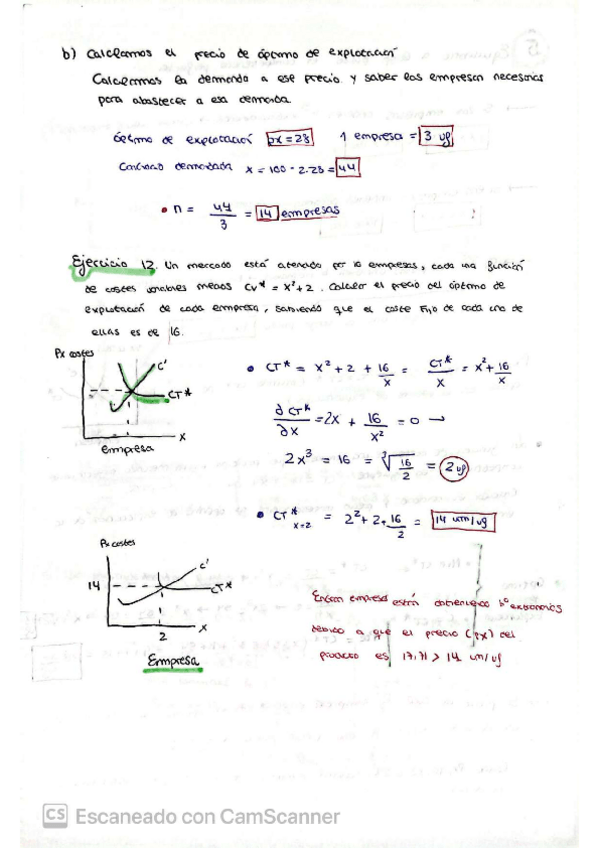 b) Calculamos el precio de óptimo de explotación
Calculamos la demanda a ese precio y saber las empresas necesarias
para abastecer a esa demanda.
óptimo de explotación px = 28 1 empresa = 3 ug
Cantidad demandada x = 100 - 2·28 = 44
• n = 44/3 = 14 empresas
Ejercicio 12. Un mercado está atendido por 10 empresas, cada una función
de costes variables medios CV* = x²+2. Calcular el precio del óptimo de
explotación de cada empresa, sabiendo que el coste fijo de cada una de
ellas es de 16.
Px costes
C'
CT*
x
empresa
• CT* = x² + 2 + 16/x = CT*/x = x² + 16/x
∂CT*/∂x = 2x + 16/x² = 0 →
2x³ = 16 = ³√16/2 = 2 ug
• CT* x=2 = 2² + 2 + 16/2 = 14 um/ug
Px costes
C'
14
CT*
2
x
Empresa
empresas están obteniendo bº extraordinarios
debido a que el precio (px) del
producto es 17,71 > 14 um/ug
CS Escaneado con CamScanner